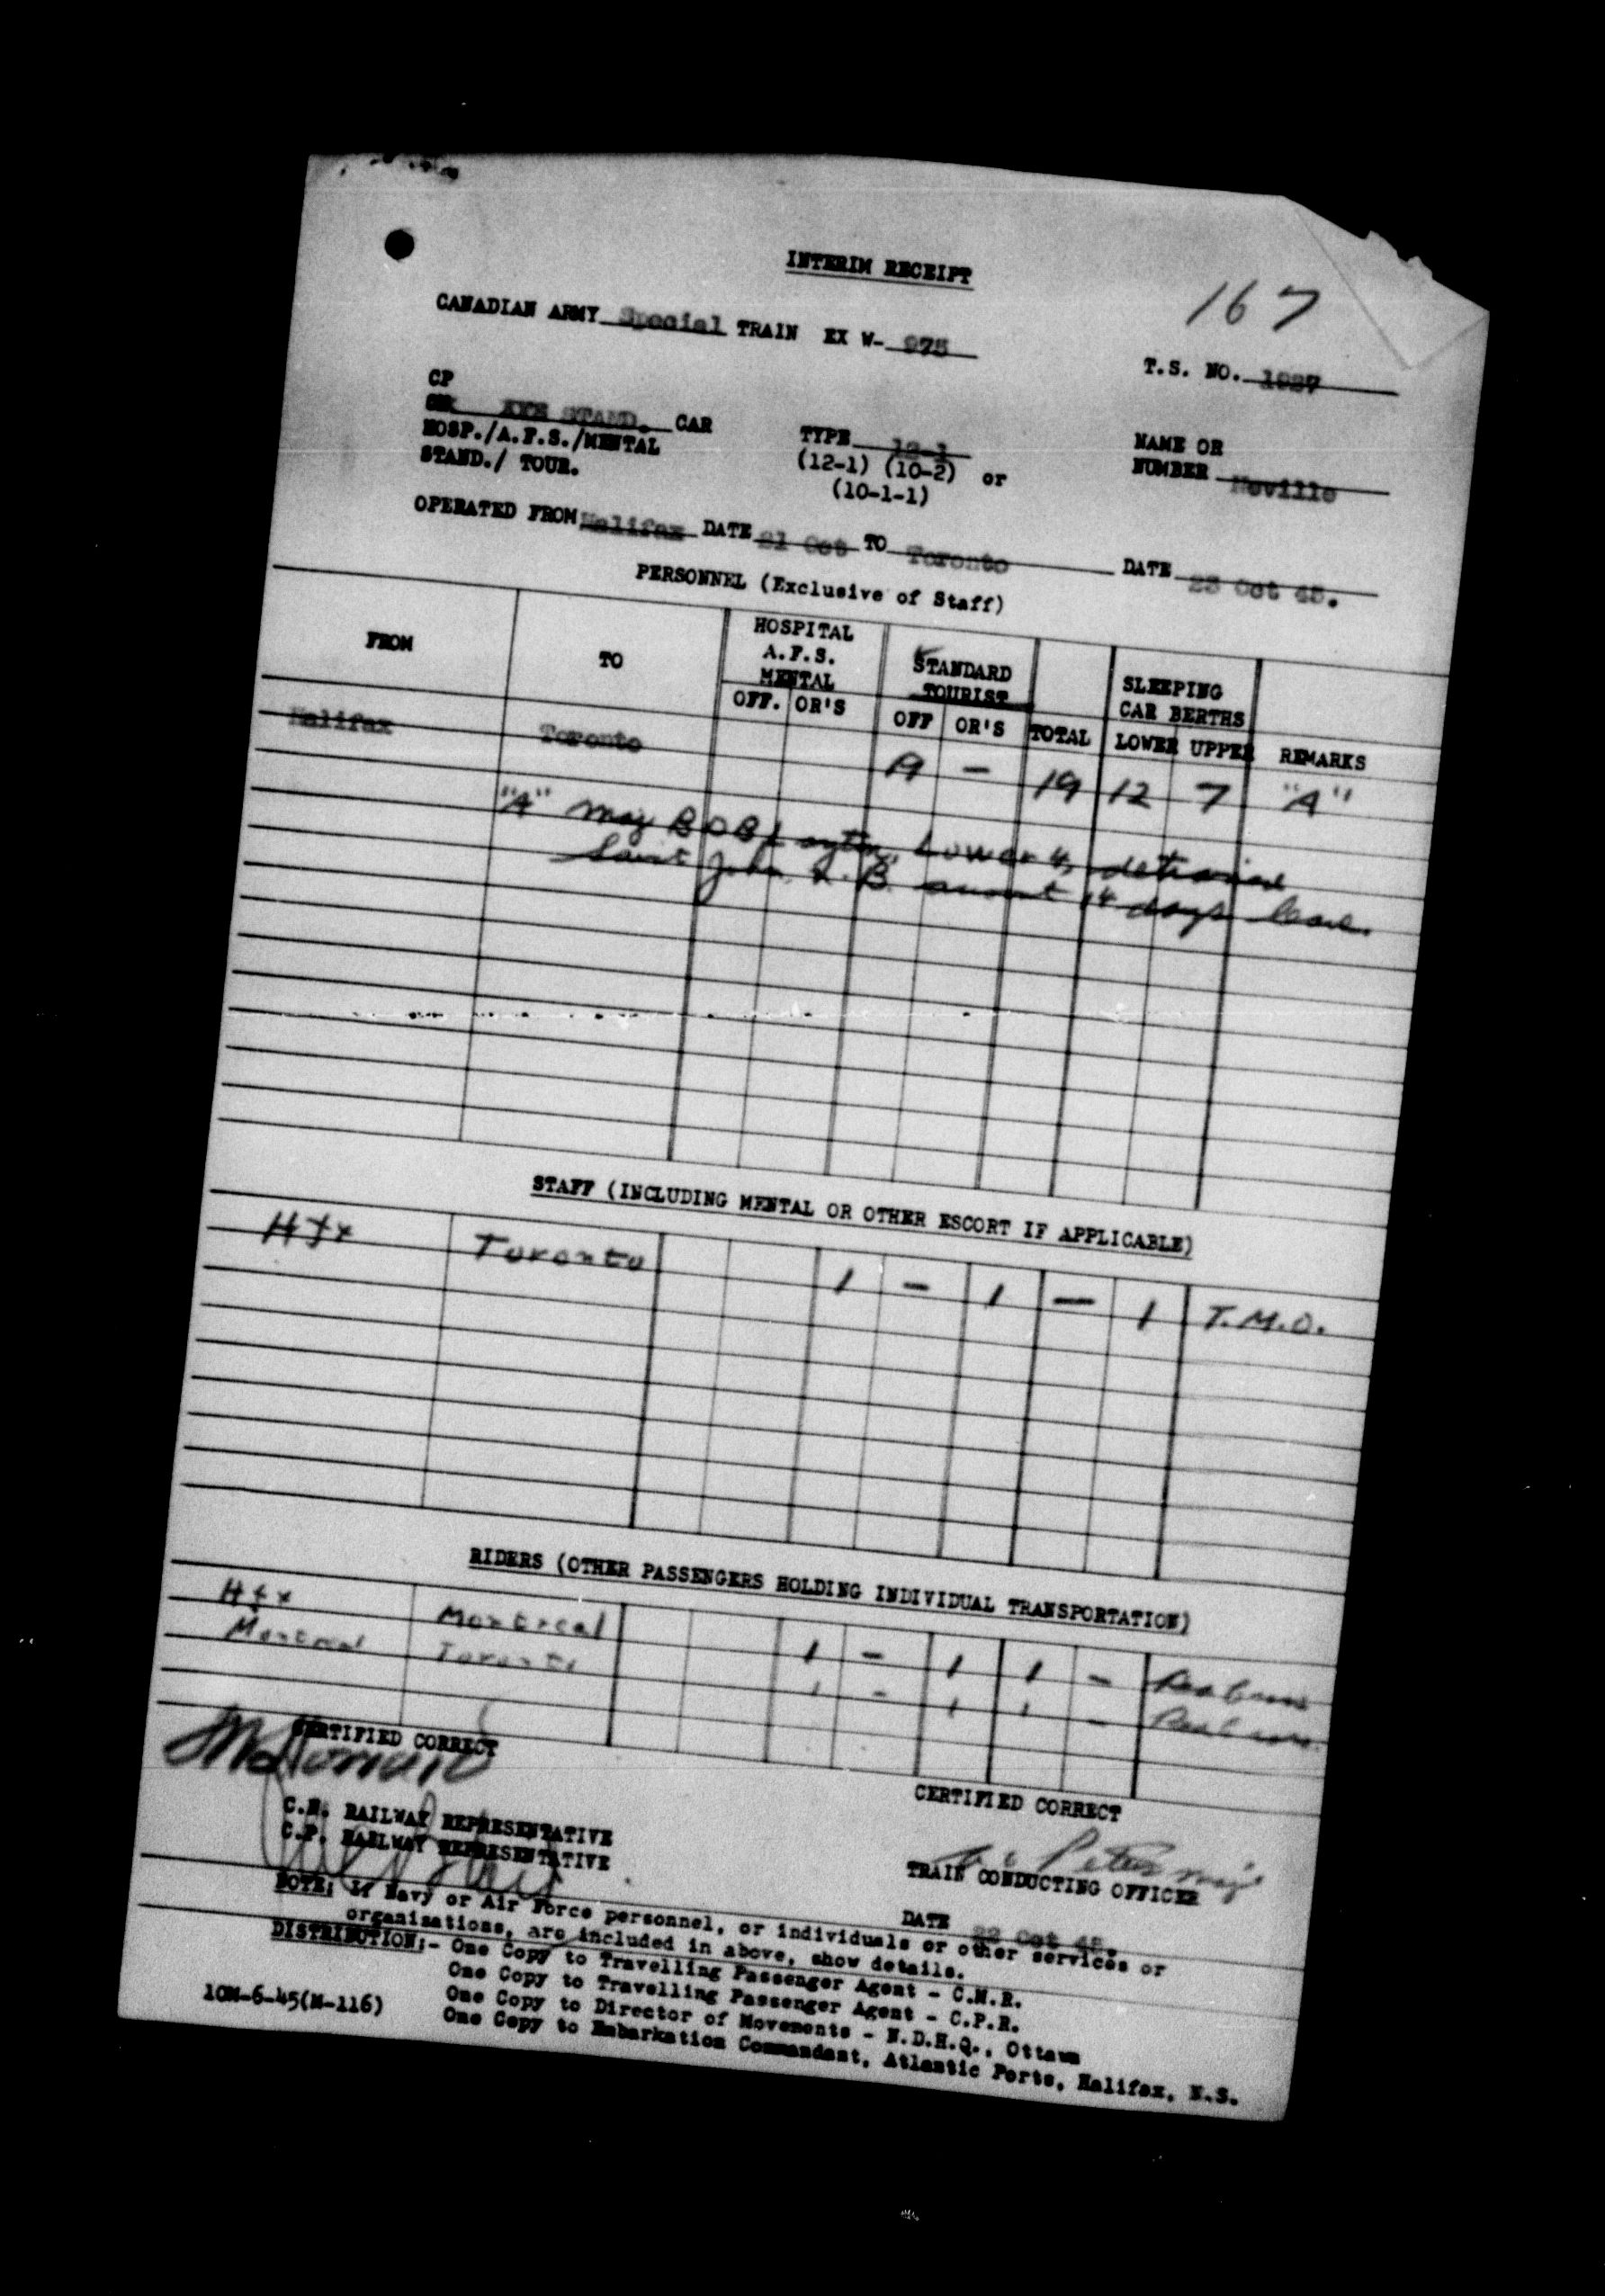 INTERIM RECEIPT
167
CANADIAN ARMY Special TRAIN EX W- 975
T.S. NO. 1927
CP
STAND. CAR
HOSP./A.F.S./MENTAL
STAND./ TOUR.
TYPE 12-1
(12-1) (10-2) or
(10-1-1)
NAME OR
NUMBER Neville
OPERATED FROM Halifax DATE 21 Oct TO Toronto DATE 23 Oct 45.
PERSONNEL (Exclusive of Staff)
FROM TO HOSPITAL A.F.S. MENTAL STANDARD TOURIST SLEEPING CAR BERTHS
OFF. OR'S OFF OR'S TOTAL LOWER UPPER REMARKS
Halifax Toronto 19 - 19 12 7 "A"
"A" Maj B O B Lower 4, detrained
Saint John N.B. 14 days leave.
STAFF (INCLUDING MENTAL OR OTHER ESCORT IF APPLICABLE)
Hfx Toronto 1 - 1 - 1 T.M.O.
RIDERS (OTHER PASSENGERS HOLDING INDIVIDUAL TRANSPORTATION)
Hfx Montreal 1 - 1 1 -
Montreal Toronto 1 - 1 1 -
CERTIFIED CORRECT
C.N. RAILWAY REPRESENTATIVE
C.P. RAILWAY REPRESENTATIVE
CERTIFIED CORRECT
Peters Maj
TRAIN CONDUCTING OFFICER
DATE 22 Oct 45.
NOTE: If Navy or Air Force personnel, or individuals or other services or
organizations, are included in above, show details.
DISTRIBUTION:- One Copy to Travelling Passenger Agent - C.N.R.
One Copy to Travelling Passenger Agent - C.P.R.
One Copy to Director of Movements - N.D.H.Q., Ottawa
One Copy to Embarkation Commandant, Atlantic Ports, Halifax, N.S.
10M-6-45(M-116)